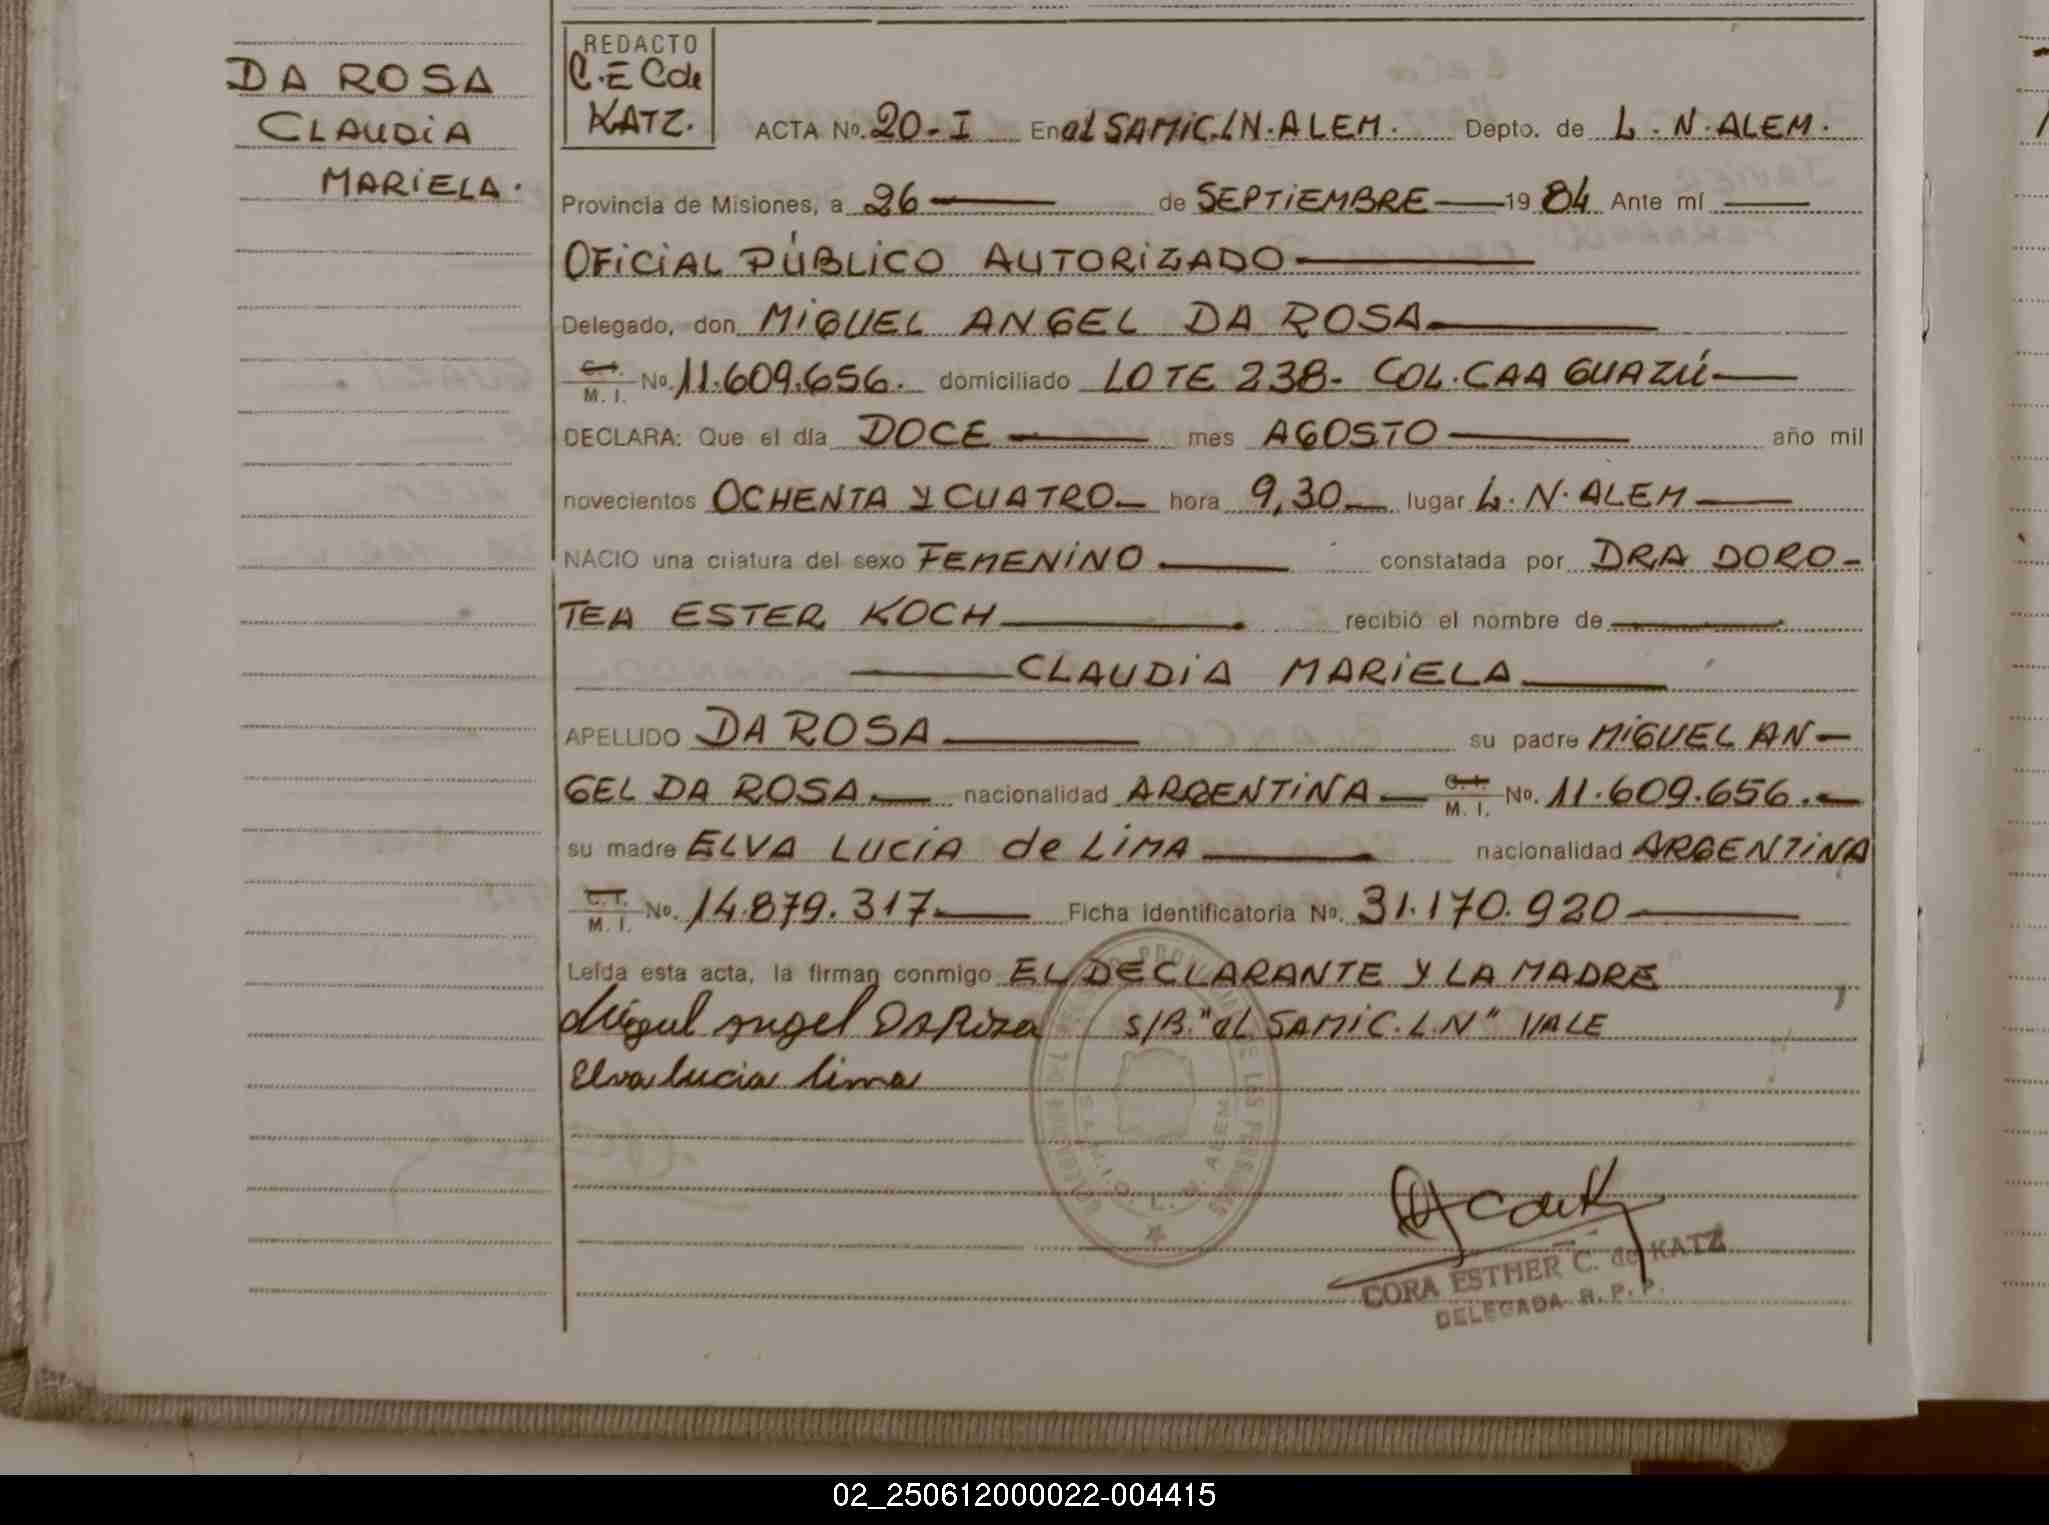 DA ROSA
CLAUDIA
MARIELA.
REDACTO
C.E Cde
KATZ.
ACTA No. 20-I En el SAMIC.L N. ALEM. Depto. de L. N. ALEM.
Provincia de Misiones, a 26 — de SEPTIEMBRE — 1984 Ante mí —
OFICIAL PÚBLICO AUTORIZADO —
Delegado, don MIGUEL ANGEL DA ROSA —
C.I. M. I. No. 11.609.656. domiciliado LOTE 238- COL. CAA GUAZÚ —
DECLARA: Que el día DOCE — mes AGOSTO — año mil
novecientos OCHENTA Y CUATRO — hora 9,30 — lugar L. N. ALEM —
NACIO una criatura del sexo FEMENINO — constatada por DRA DORO-
TEA ESTER KOCH — recibió el nombre de —
— CLAUDIA MARIELA —
APELLIDO DA ROSA — su padre MIGUEL AN-
GEL DA ROSA — nacionalidad ARGENTINA — C.I. M. I. No. 11.609.656. —
su madre ELVA LUCIA de LIMA — nacionalidad ARGENTINA
C.I. M. I. No. 14.879.317 — Ficha identificatoria No. 31.170.920 —
Leída esta acta, la firman conmigo EL DECLARANTE Y LA MADRE
Miguel angel DaRosa S/B. "el SAMIC.L.N" VALE
Elva lucia lima
S.A.M.I.C. L. N. ALEM
CORA ESTHER C. de KATZ
DELEGADA R. P. P.
02_250612000022-004415